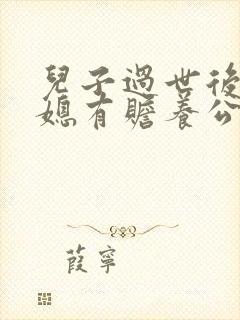 兒子過世後
媳有贍養公
葭寧